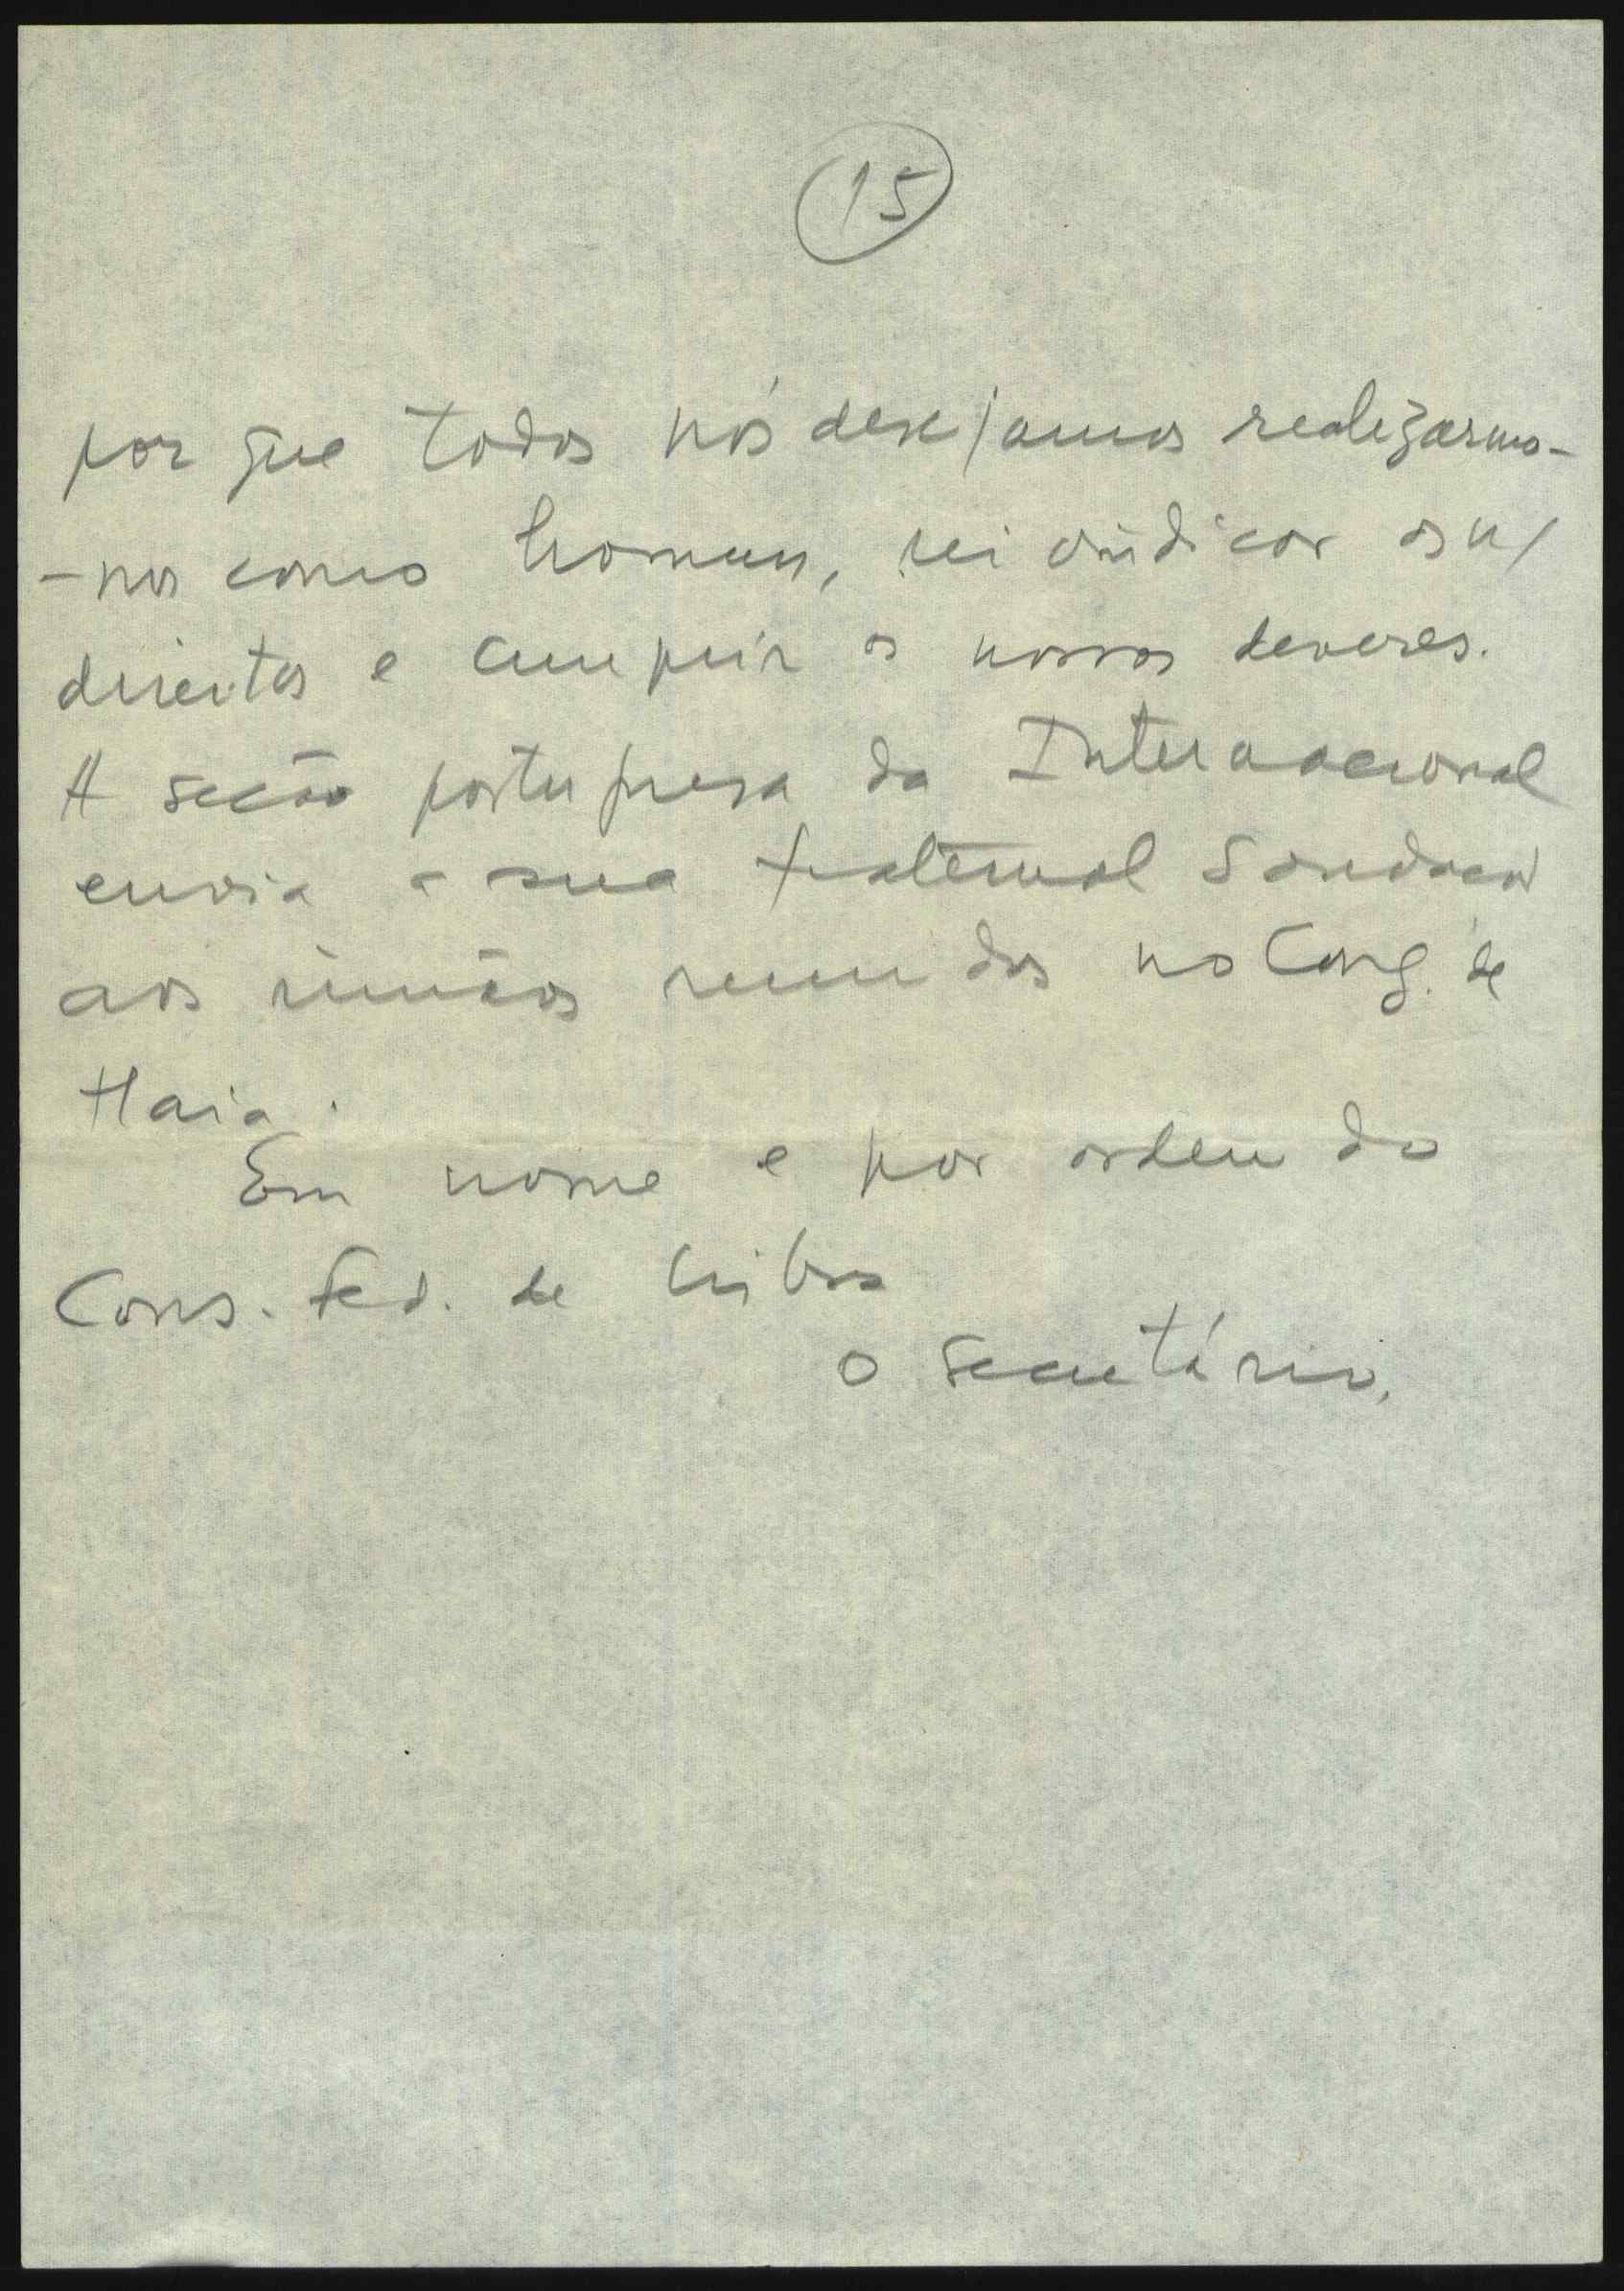 15
por que todos nós desejamos realizarmo-
-nos como homens, reivindicar os n/
direitos e cumprir os nossos deveres.
A secção portuguesa da Internacional
envia a sua fraternal saudação
aos irmãos reunidos no Cong. de
Haia.
Em nome e por ordem do
Cons. Fed. de Lisboa
O Secretário,